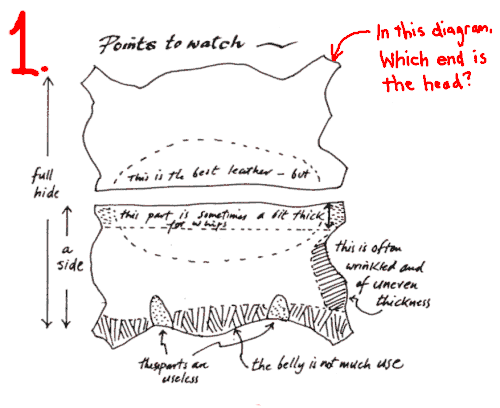 1.
Points to watch
In this diagram,
Which end is
the head?
This is the best leather - but
full
hide
this part is sometimes a bit thick
for whips
a
side
this is often
wrinkled and
of uneven
thickness
these parts are
useless
the belly is not much use